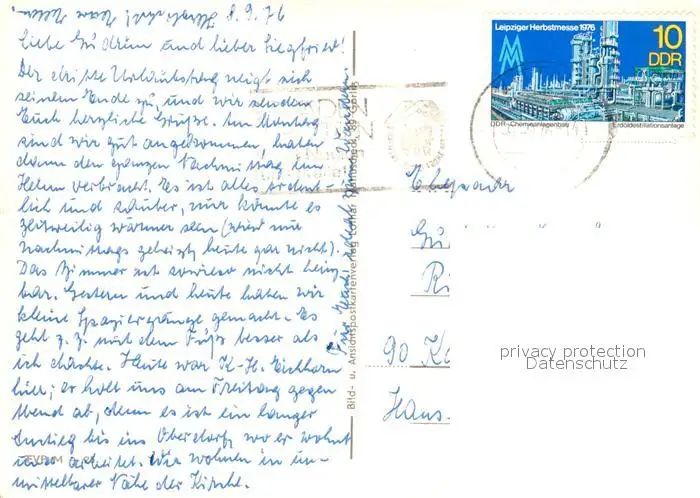 8.9.76
Liebe Gudrun und lieber Siegfried!
Der dritte Urlaubstag neigt sich
seinem Ende zu, und wir senden
Euch herzliche Grüße. Am Montag
sind wir gut angekommen, haben
dann den ganzen Nachmittag im
Heim verbracht. Es ist alles ordent-
lich und sauber, nur könnte es
zeitweilig wärmer sein (wird nur
nachmittags geheizt, heute gar nicht).
Das Zimmer ist sowieso nicht heiz-
bar. Gestern und heute haben wir
kleine Spaziergänge gemacht. Es
geht z. Z. mit dem Fuß besser als
ich dachte. Heute war K.-H. Eichhorn
hier; er holt uns am Freitag gegen
Abend ab, denn es ist ein langer
Anstieg bis ins Oberdorf, wo er wohnt
und arbeitet. Wir wohnen in un-
mittelbarer Nähe der Kirche.
Bild- u. Ansichtskartenverlag Lothar
Leipziger Herbstmesse 1976
10
DDR
DDR-Chemieanlagenbau
Erdöldestillationsanlage
Ehepaar
Gu
Ri
90 K
Hans.
privacy protection
Datenschutz